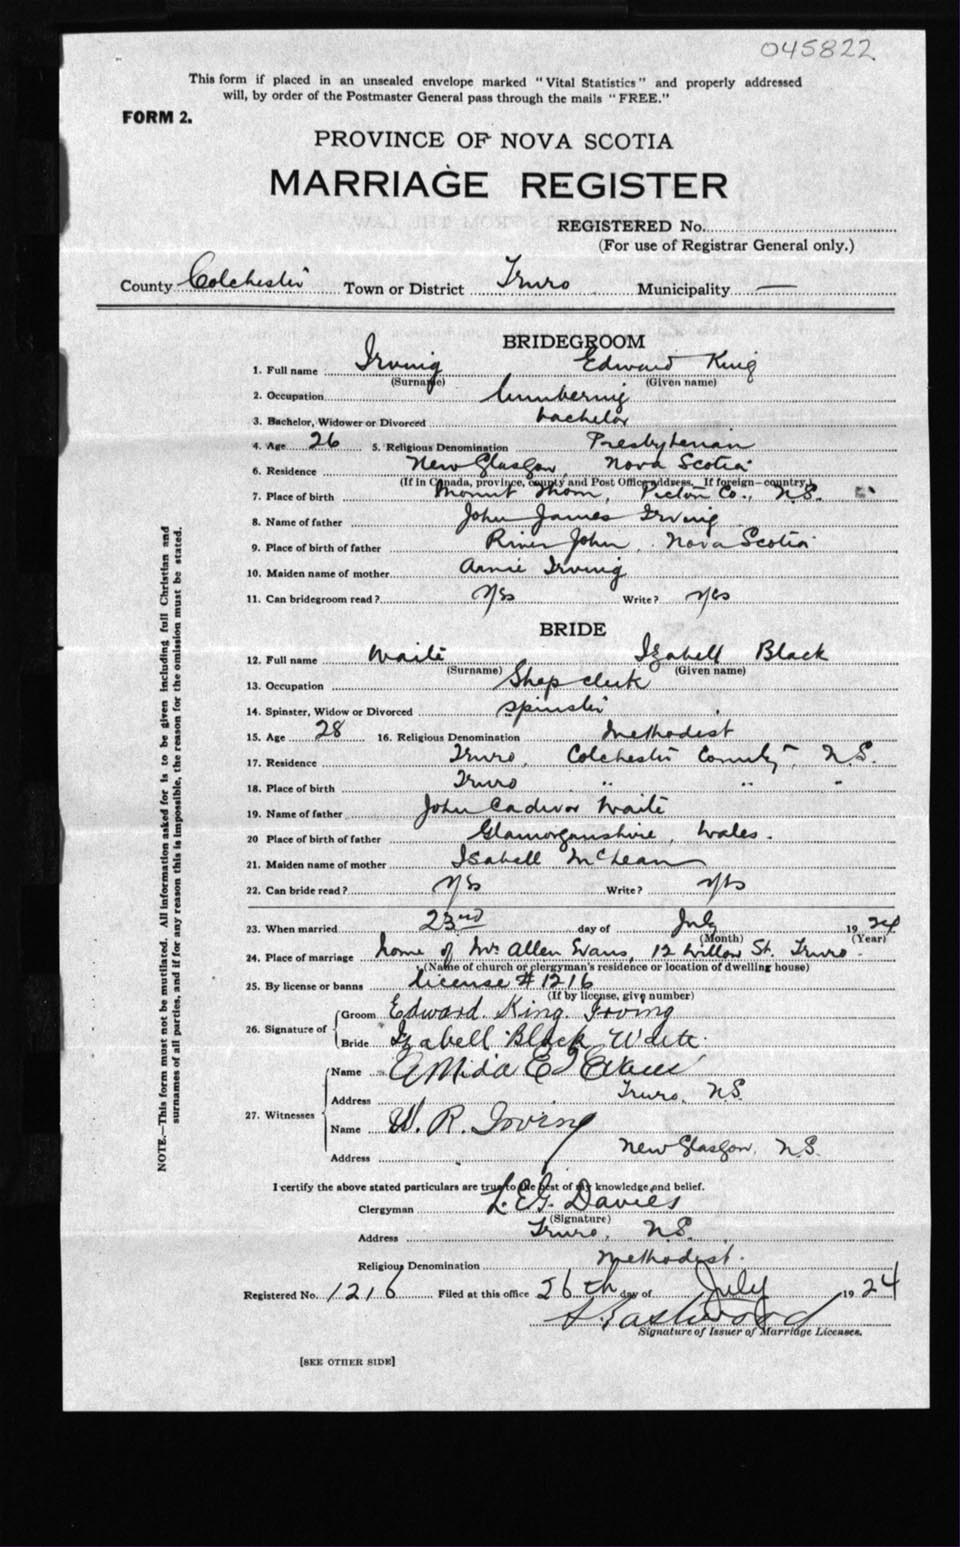 045822
This form if placed in an unsealed envelope marked "Vital Statistics" and properly addressed
will, by order of the Postmaster General pass through the mails "FREE."
FORM 2.
PROVINCE OF NOVA SCOTIA
MARRIAGE REGISTER
REGISTERED No.
(For use of Registrar General only.)
County Colchester Town or District Truro Municipality —
BRIDEGROOM
1. Full name Irving Edward King
(Surname) (Given name)
2. Occupation lumbering
3. Bachelor, Widower or Divorced bachelor
4. Age 26 5. Religious Denomination Presbyterian
6. Residence New Glasgow, Nova Scotia
(If in Canada, province, county and Post Office address. If foreign—country.)
7. Place of birth Mount Thom, Pictou Co., N.S.
8. Name of father John James Irving
9. Place of birth of father River John, Nova Scotia
10. Maiden name of mother Annie Irving
11. Can bridegroom read? Yes Write? Yes
BRIDE
12. Full name Waite Izabell Black
(Surname) (Given name)
13. Occupation Shop clerk
14. Spinster, Widow or Divorced spinster
15. Age 28 16. Religious Denomination Methodist
17. Residence Truro, Colchester County, N.S.
18. Place of birth Truro " " "
19. Name of father John Cadivor Waite
20 Place of birth of father Glamorganshire, Wales.
21. Maiden name of mother Isabell McLean
22. Can bride read? Yes Write? Yes
23. When married 23rd day of July 1924
(Month) (Year)
24. Place of marriage home of Mr Allen Evans, 12 Willow St. Truro.
(Name of church or clergyman's residence or location of dwelling house)
25. By license or banns license # 1216
(If by license, give number)
26. Signature of Groom Edward King Irving
Bride Izabell Black Waite.
27. Witnesses Name E Evans
Address Truro, N.S.
Name W. R. Irving
Address New Glasgow, N.S.
I certify the above stated particulars are true to the best of my knowledge and belief.
Clergyman L. E. G. Davies
(Signature)
Address Truro, N.S.
Religious Denomination Methodist.
Registered No. 1216 Filed at this office 26th day of July 1924
Eastwood
Signature of Issuer of Marriage Licenses.
[SEE OTHER SIDE]
NOTE.—This form must not be mutilated. All information asked for is to be given including full Christian and
surnames of all parties, and if for any reason this is impossible, the reason for the omission must be stated.